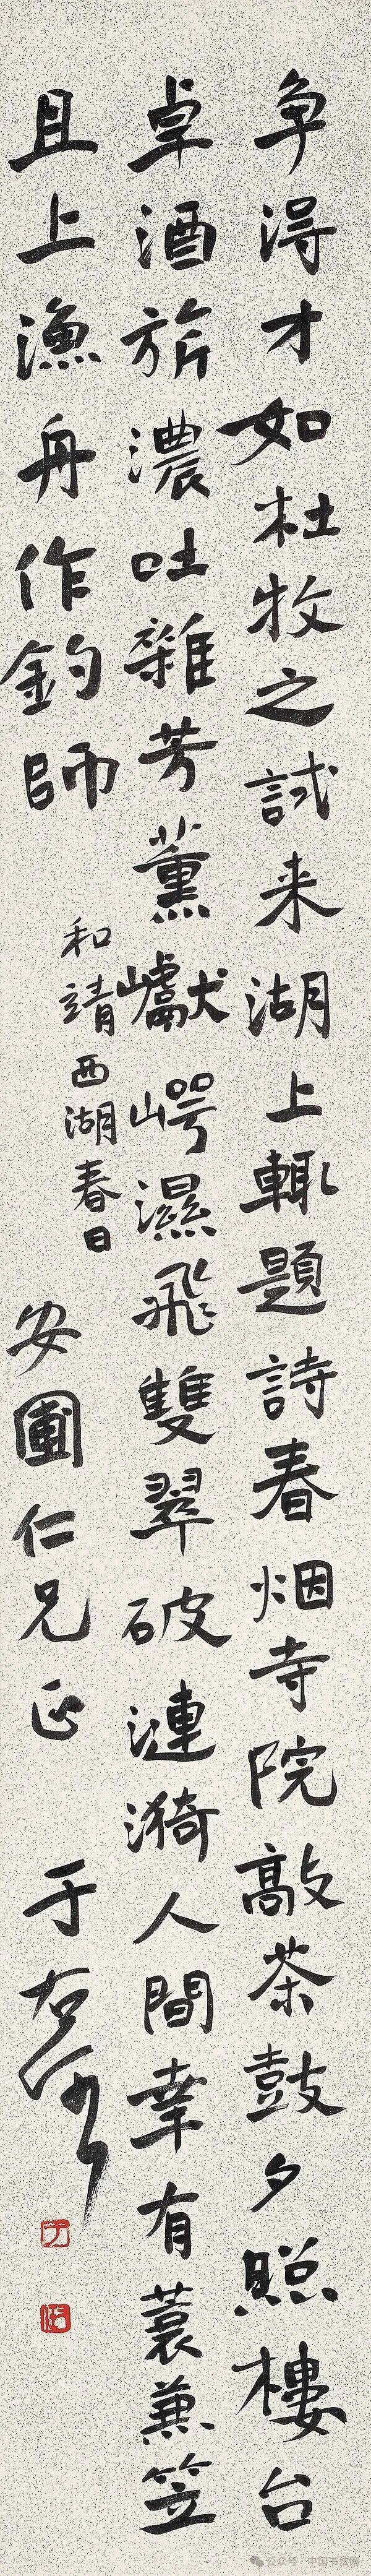 争淂才如杜牧之試来湖上輙題詩春烟寺院敲茶鼓夕照樓台
卓酒旂濃吐雜芳薰巘崿濕飛雙翠破漣漪人間幸有蓑兼笠
且上漁舟作釣師
和靖西湖春日
安圃仁兄正
于右任
公众号·中国书法网